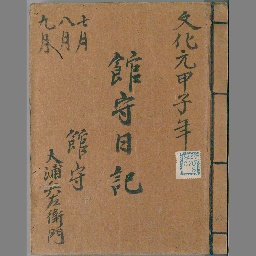 文化元甲子年
館守日記
七月
八月
九月
館守
大浦兵左衛門